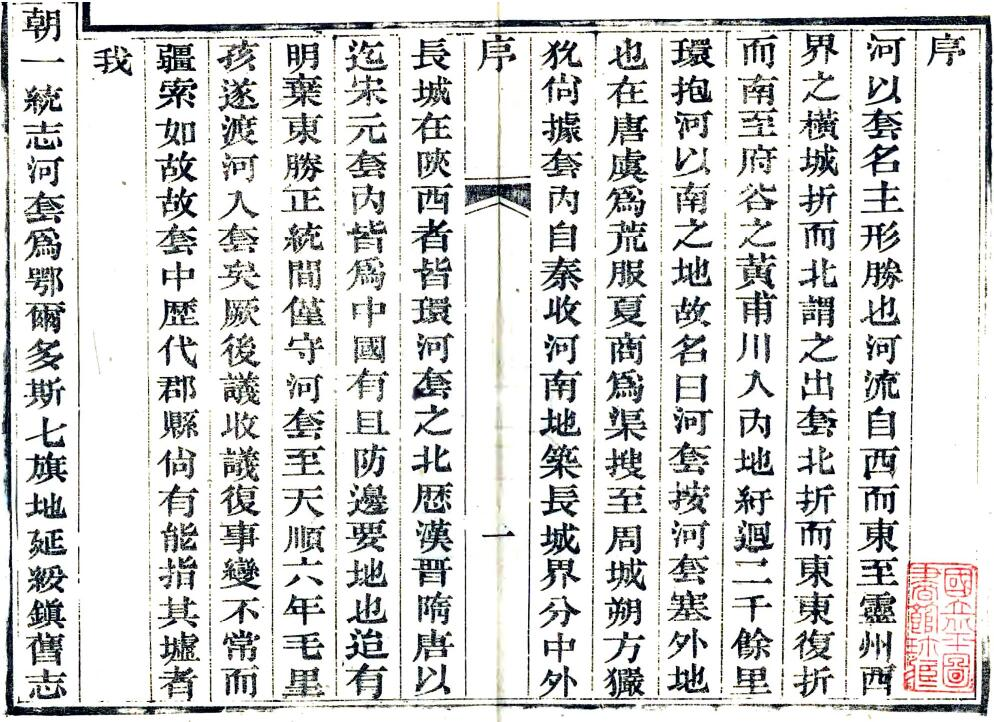 序
河以套名主形勝也河流自西而東至靈州西
界之橫城折而北謂之出套北折而東東復折
而南至府谷之黃甫川入內地紆迴二千餘里
環抱河以南之地故名曰河套按河套塞外地
也在唐虞為荒服夏商為渠搜至周城朔方玁
狁尙據套內自秦收河南地築長城界分中外
序
一
長城在陝西者皆環河套之北歷漢晉隋唐以
迄宋元套內皆為中國有且防邊要地也迨有
明棄東勝正統間僅守河套至天順六年毛里
孩遂渡河入套矣厥後議收議復事變不常而
疆索如故故套中歷代郡縣尙有能指其墟者
我
朝一統志河套為鄂爾多斯七旗地延綏鎮舊志